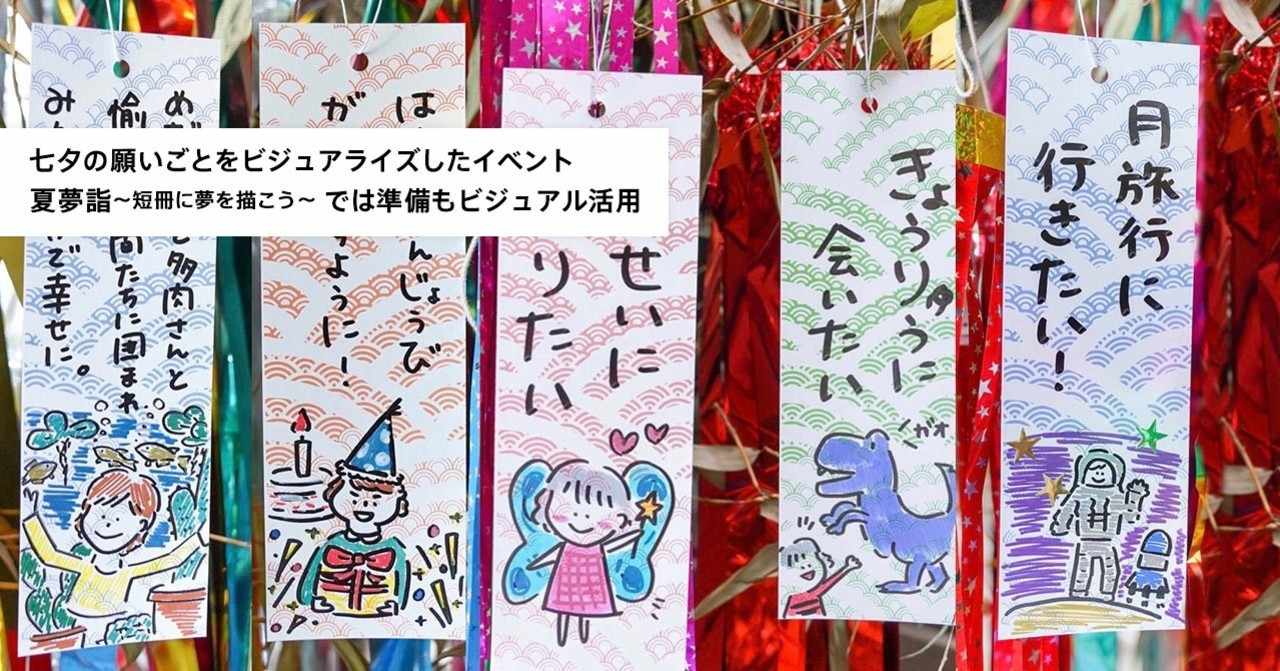 七夕の願いごとをビジュアライズしたイベント
夏夢詣～短冊に夢を描こう～ では準備もビジュアル活用
と多肉さんと
間たちに囲まれ
で幸せに。
んじょうび
ように！
せいに
りたい
きょうりゅうに
会いたい
ガオ
月旅行に
行きたい！